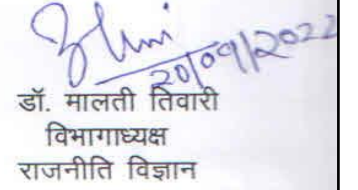 20/09/2022
डॉ. मालती तिवारी
विभागाध्यक्ष
राजनीति विज्ञान